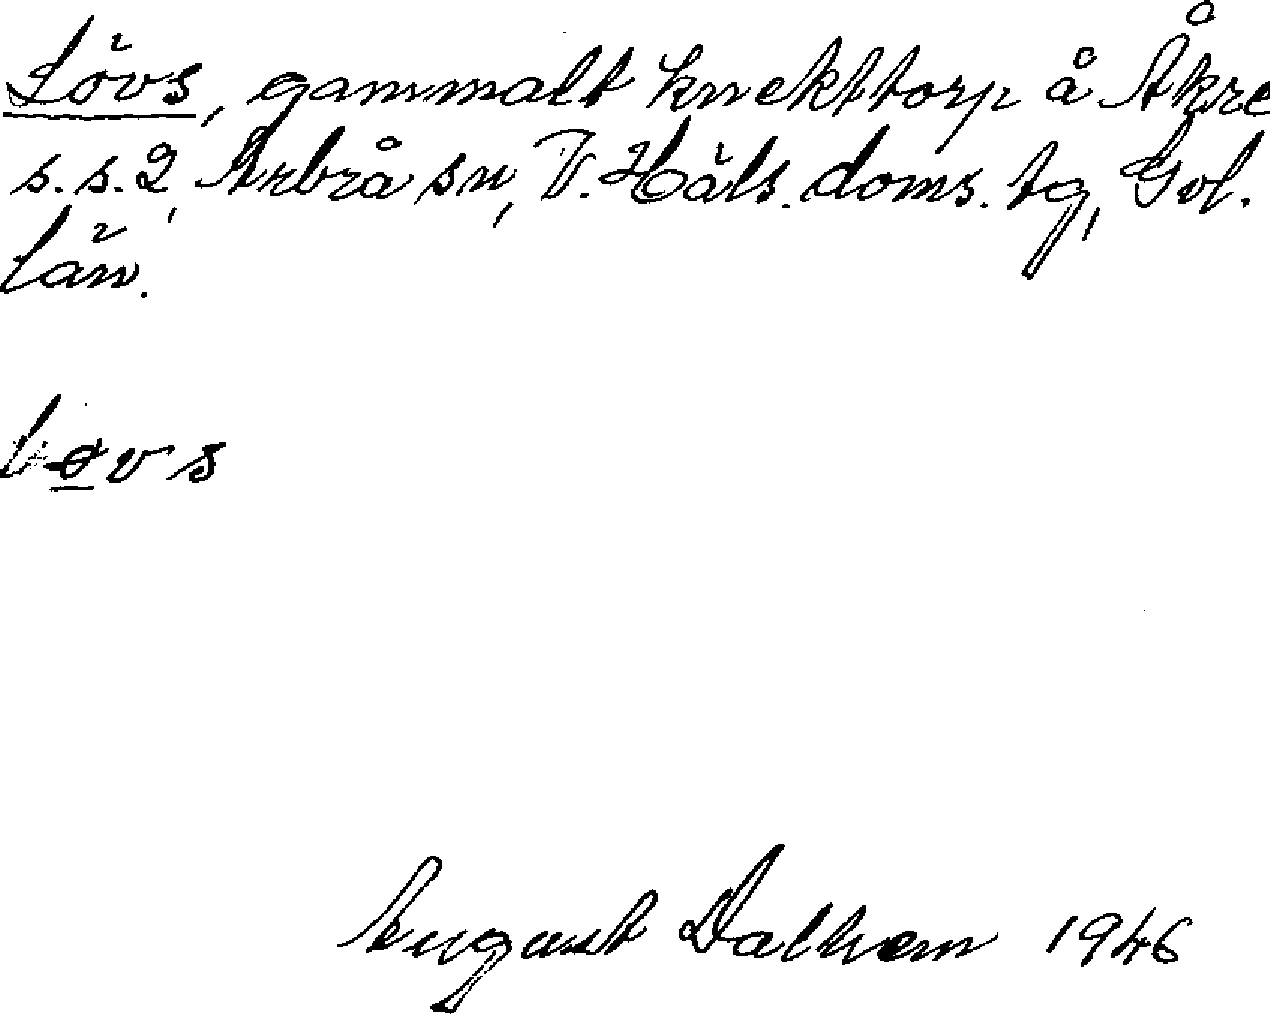 Lövs, gammalt knekttorp å Åkre
s.s. 2, Arbrå sn, V. Häls. doms. tg, Gvl.
län.
løvs
August Dalhem 1946